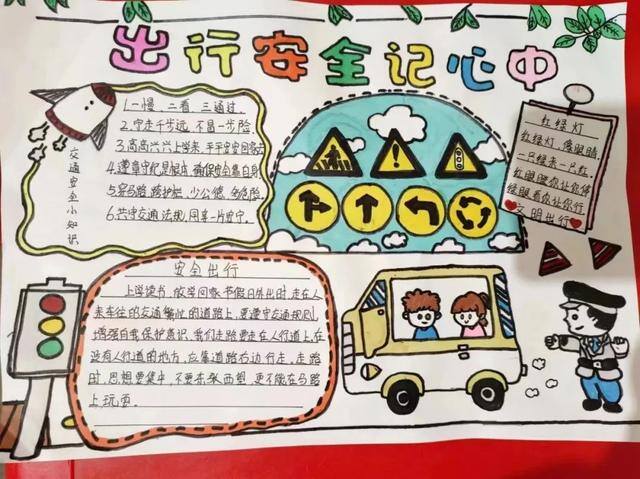 出行安全记心中
交通安全小知识
1.一慢、二看、三通过。
2.宁走千步远,不冒一步险。
3.高高兴兴上学来,平平安安回家去
4.遵章守纪是根本,确保安全靠自身
5.穿马路,跨护栏,少公德,多危险。
6.共守交通法规,同享一片安宁。
红绿灯
红绿灯,像眼睛
一只绿来一只红。
红眼瞪你让你停
绿眼看你让你行
文明出行
安全出行
上学读书、放学回家、节假日外出时,走在人
来车往的交通繁忙的道路上,要遵守交通规则,
增强自我保护意识。我们走路要走在人行道上,在
没有人行道的地方,应靠道路右边行走。走路
时,思想要集中,不要东张西望,更不能在马路
上玩耍。